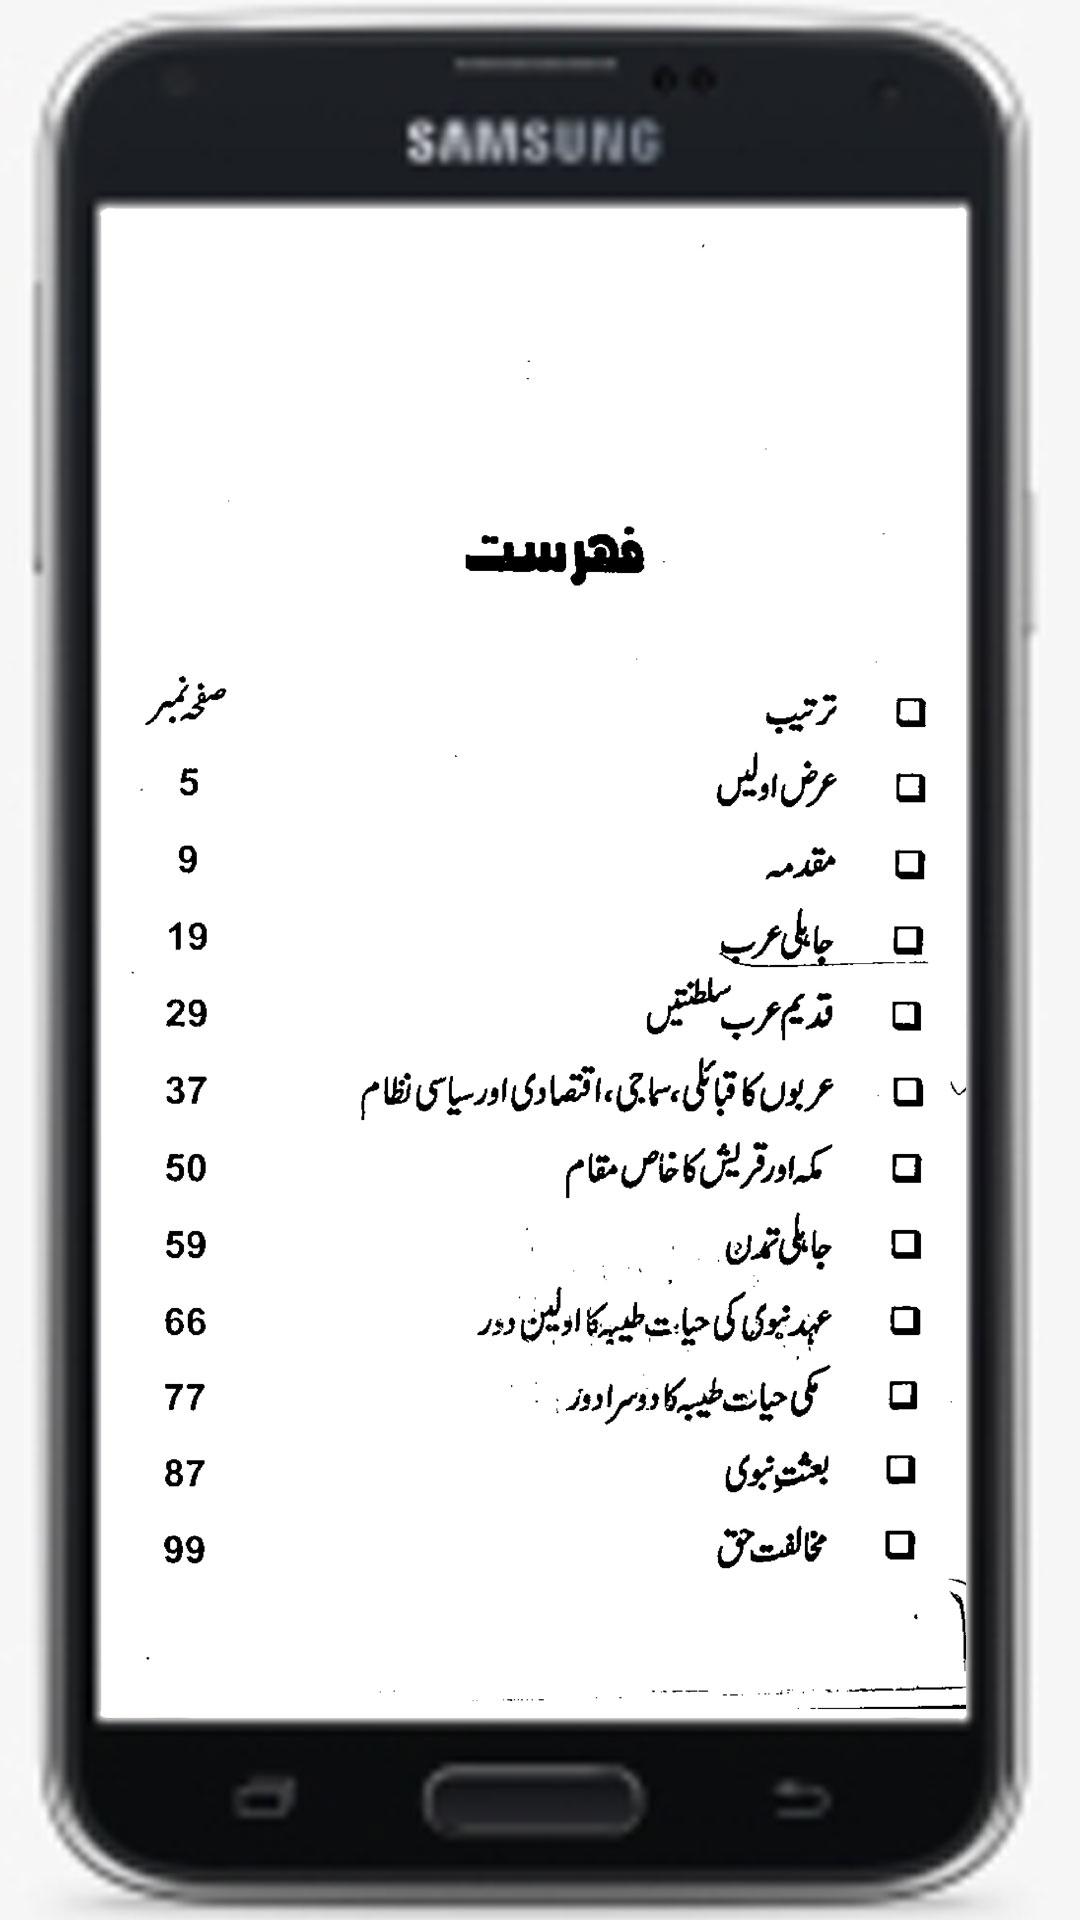 SAMSUNG
فهرست
ترتیب صفحہ نمبر
عرض اولیں 5
مقدمہ 9
جاہلی عرب 19
قدیم عرب سلطنتیں 29
عربوں کا قبائلی، سماجی، اقتصادی اور سیاسی نظام 37
مکہ اور قریش کا خاص مقام 50
جاہلی تمدن 59
عہد نبوی کی حیات طیبہ کا اولین دور 66
مکی حیات طیبہ کا دوسرا دور 77
بعثتِ نبوی 87
مخالفت حق 99